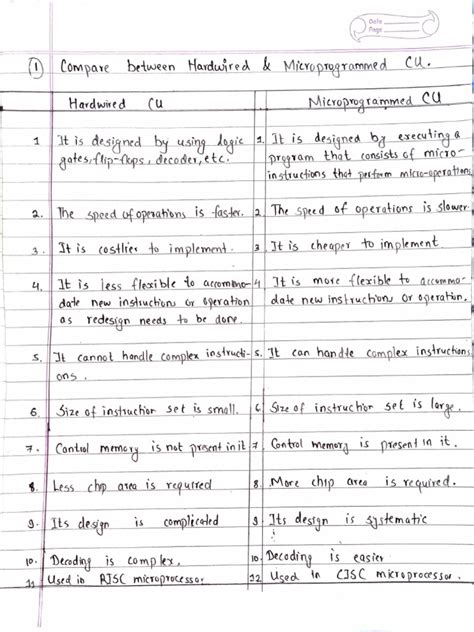 Date
Page
1 Compare between Hardwired & Microprogrammed CU.
Hardwired CU
Microprogrammed CU
1 It is designed by using logic
gates, flip-flops, decoder, etc.
1. It is designed by executing a
program that consists of micro-
instructions that perform micro-operations
2. The speed of operations is faster.
2 The speed of operations is slower.
3. It is costlier to implement.
3 It is cheaper to implement
4. It is less flexible to accommo-
date new instruction or operation
as redesign needs to be done.
4. It is more flexible to accommo-
date new instruction or operation.
5. It cannot handle complex instructi-
ons.
5. It can handle complex instructions
6. Size of instruction set is small.
6 Size of instruction set is large.
7. Control memory is not present in it
7. Control memory is present in it.
8. Less chip area is required
8. More chip area is required.
9. Its design is complicated
9. Its design is systematic
10. Decoding is complex.
10. Decoding is easier.
11 Used in RISC microprocessor.
Used in CISC microprocessor.